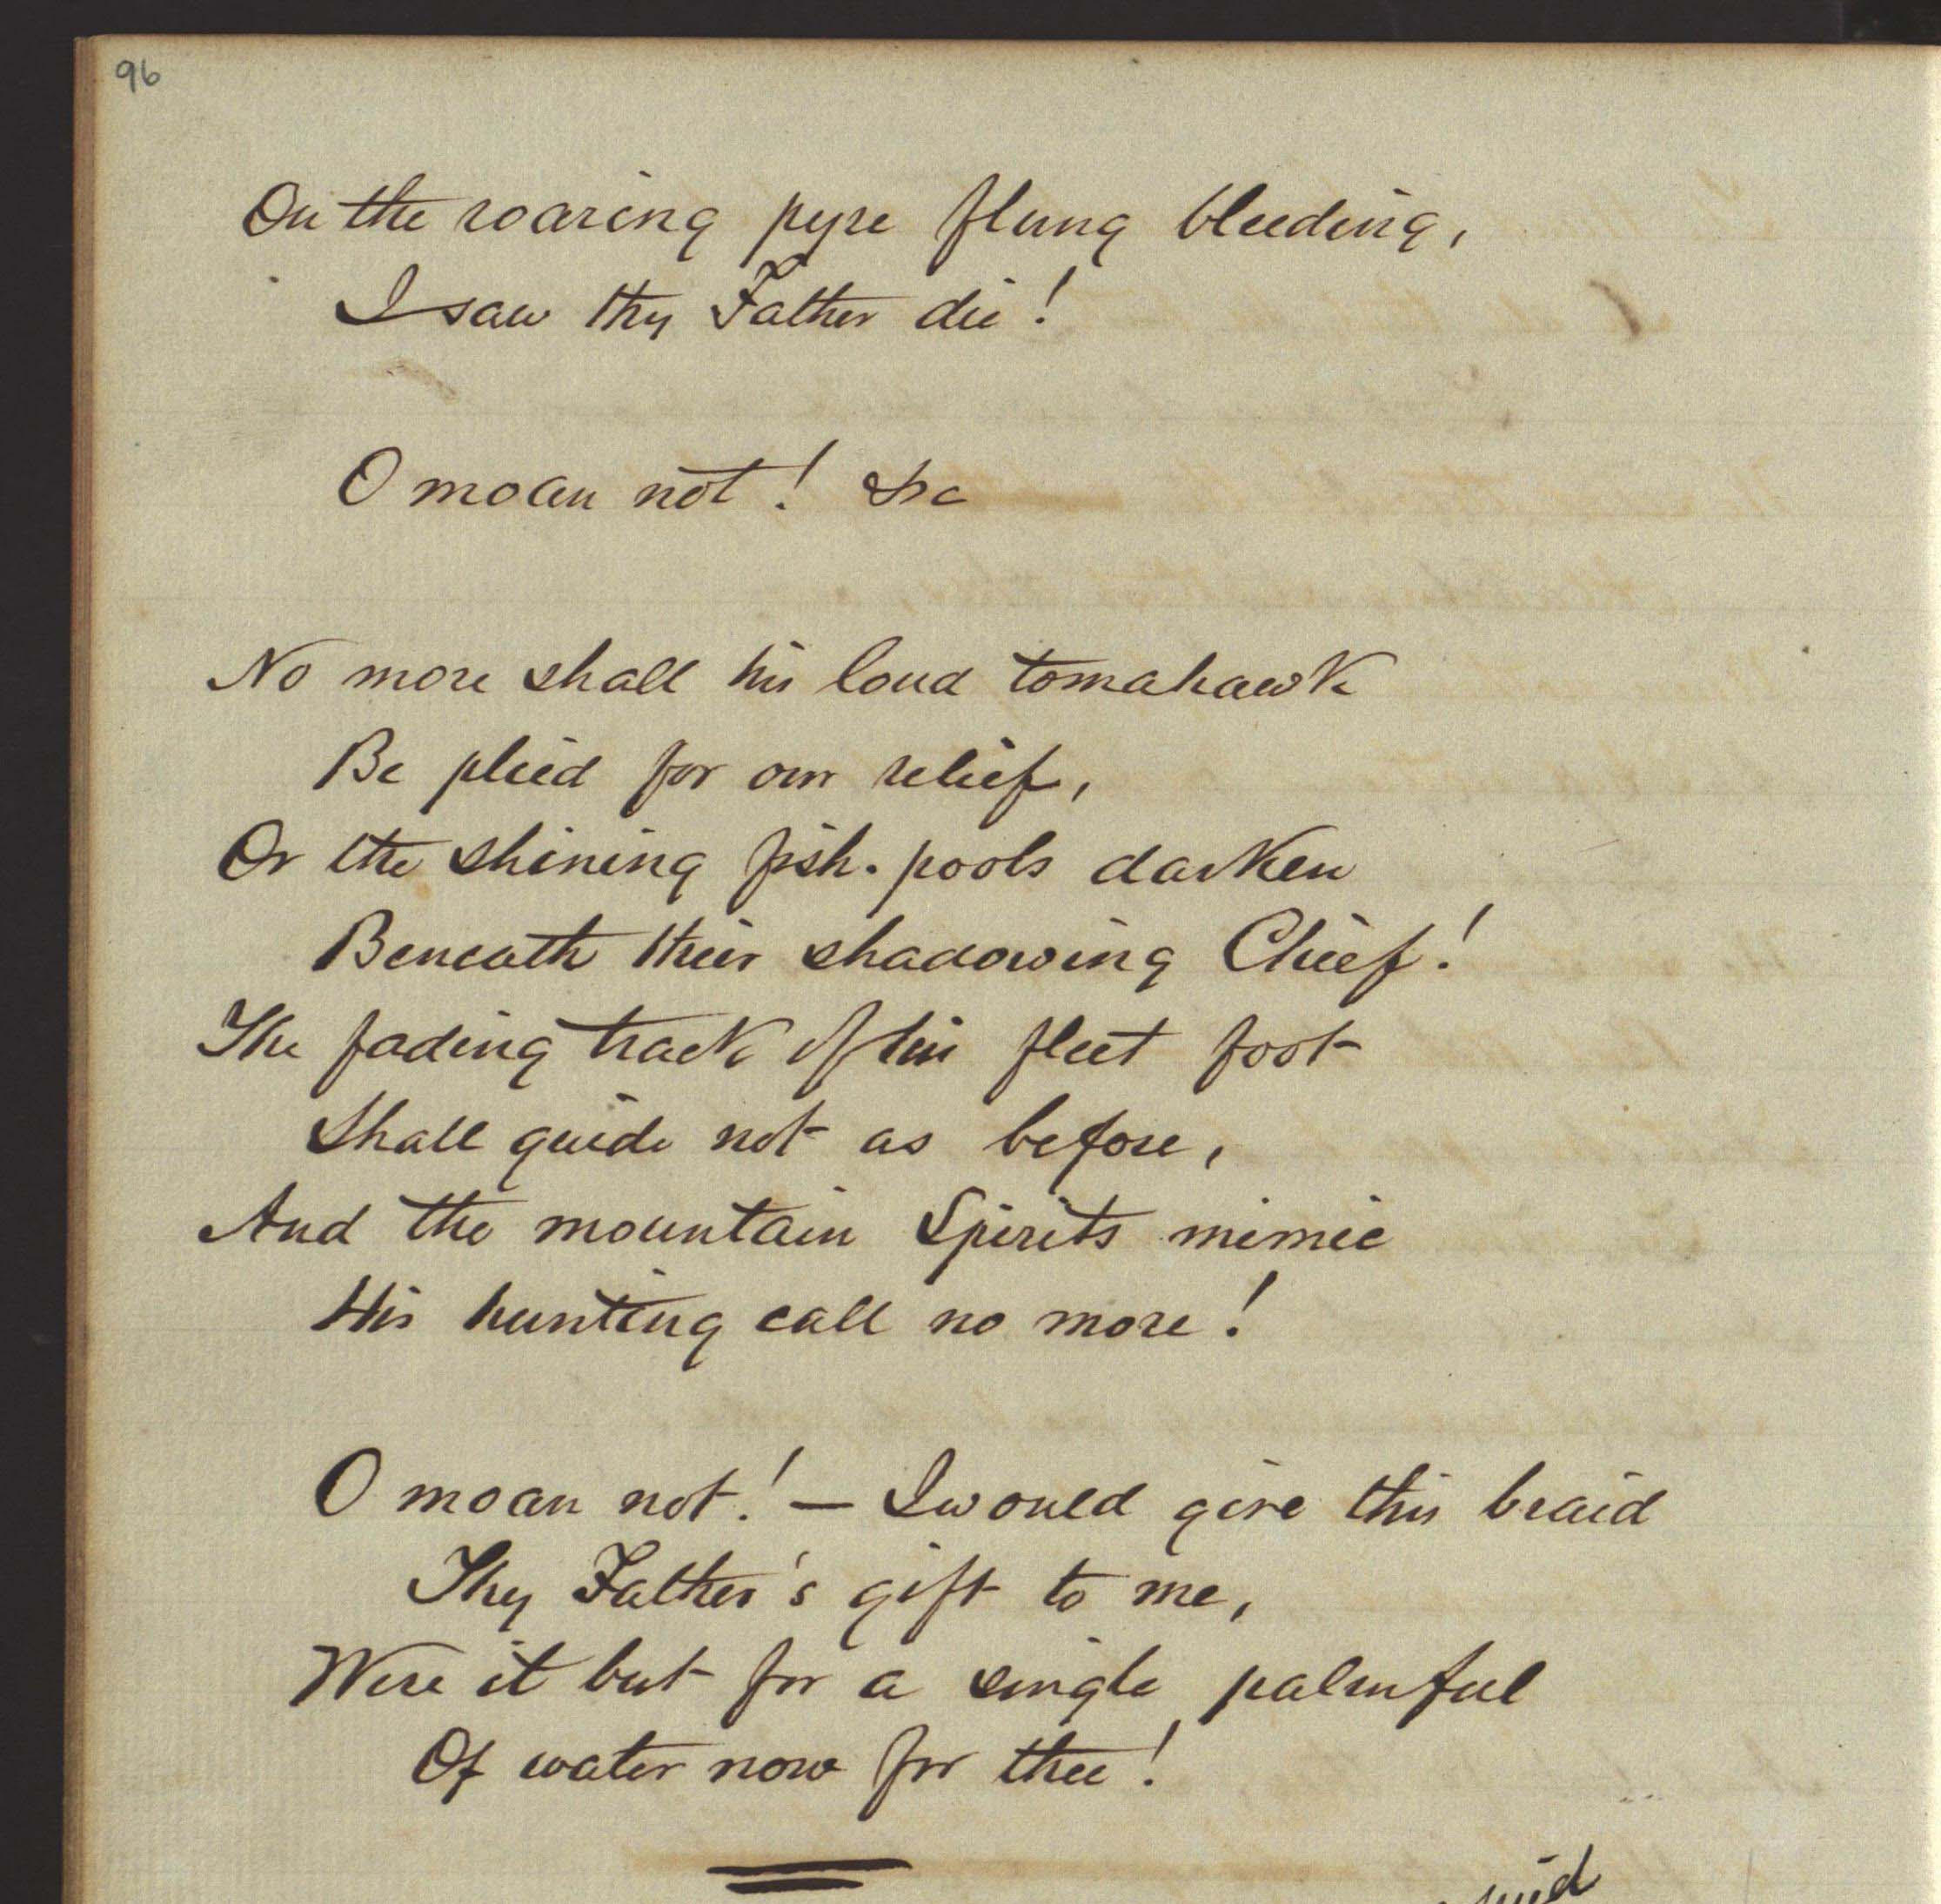 96
On the roaring pyre flung bleeding,
I saw thy Father die!
O moan not! &c
No more shall his loud tomahawk
Be plied for our relief,
Or the shining fish-pools darken
Beneath their shadowing Chief!
The fading track of his fleet foot
Shall guide not as before,
And the mountain Spirits mimic
His hunting call no more!
O moan not! — I would give this braid
Thy Father's gift to me,
Were it but for a single palmful
Of water now for thee!